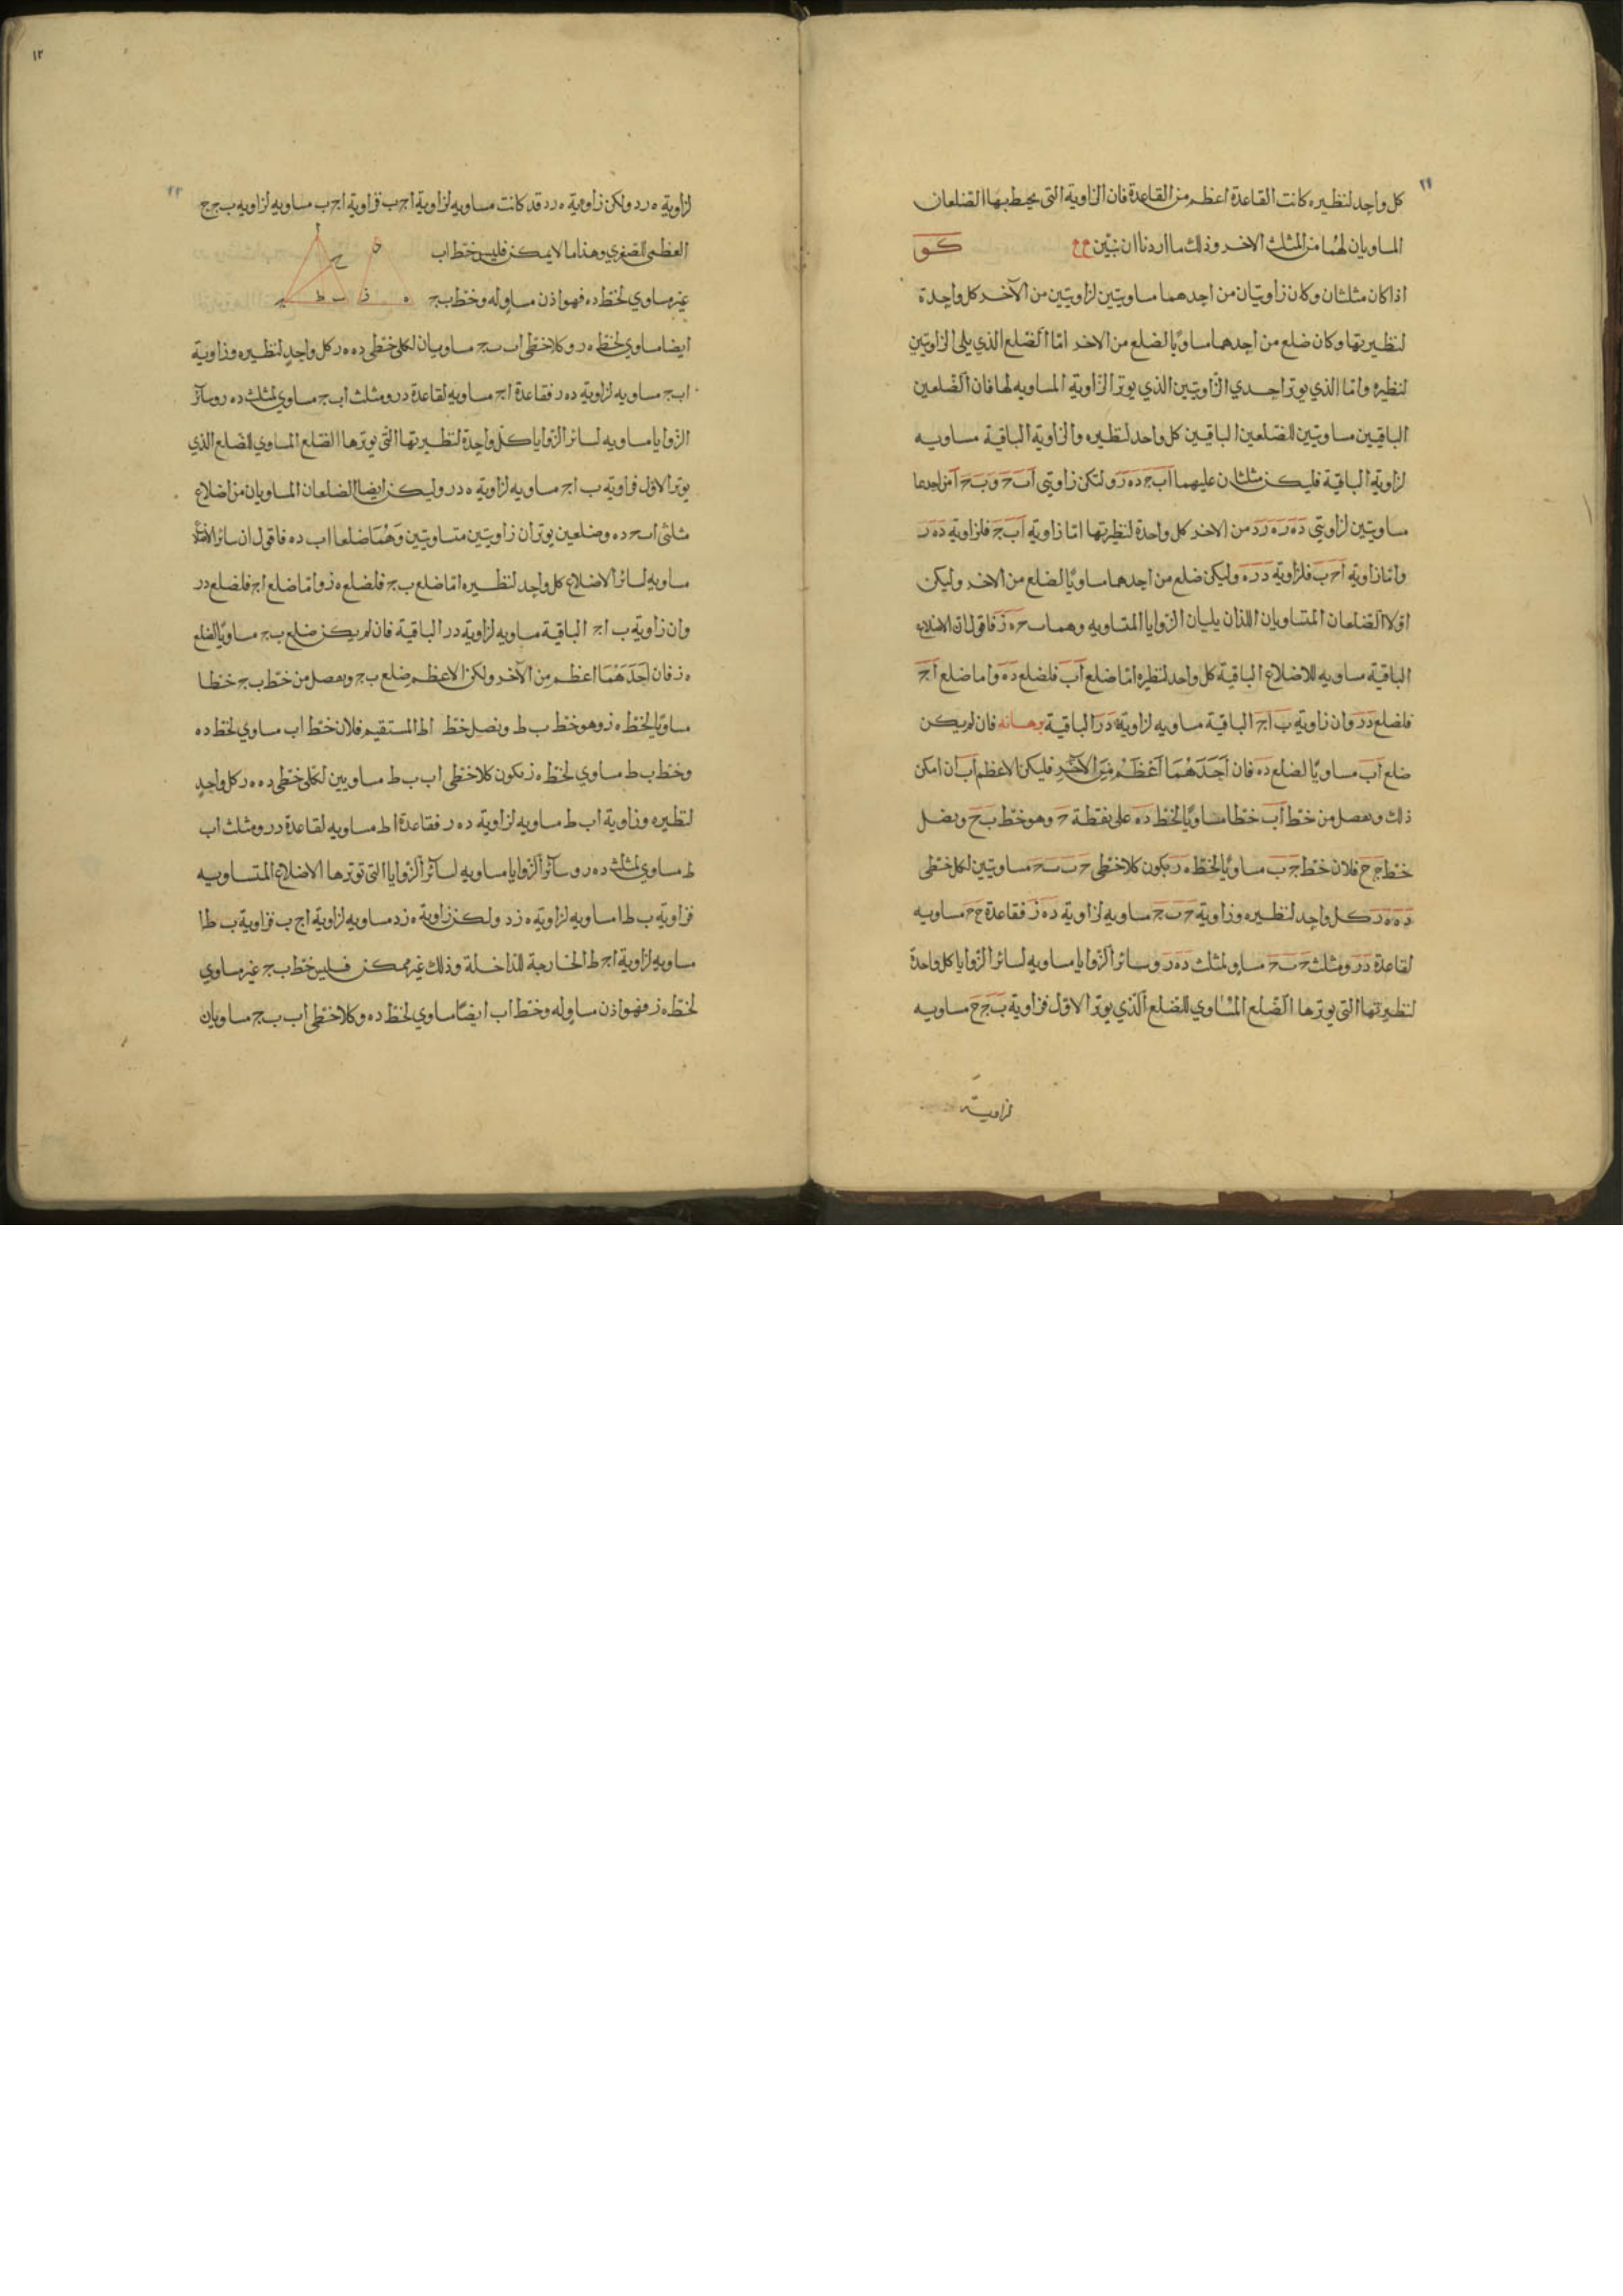 ١١
كل واحد لنظيره كانت القاعدة اعظم من القاعدة فان الزاوية التى يحيط بها الضلعان
المساويان لهما من المثلث الاخر وذلك ما اردنا ان نبين كو
اذا كان مثلثان وكان زاويتان من احدهما مساويتين لزاويتين من الآخر كل واحدة
لنظيرتها وكان ضلع من احدهما مساويًا لضلع من الاخر امّا الضلع الذي يلى الزاويتين
لنظيره وامّا الذي يوتر احدي الزاويتين الذي يوتر الزاوية المساويه لها فان الضلعين
الباقيين مساويتين للضلعين الباقيين كل واحد لنظيره والزاوية الباقية مساويه
لزاويته الباقية فليكن مثلثان عليهما اب ج ده ر ولتكن زاويتى اب ح وب ح ا من احدهما
مساويتين لزاويتي ده ر ه ر د من الاخر كل واحدة لنظيرتها امّا زاوية اب ج فلزاوية ده ر
وامّا زاوية اح ب فلزاوية د ر ه وليكن ضلع من احدهما مساويًا لضلع من الاخر وليكن
اوّلا الضلعان المتساويان اللذان يليان الزوايا المتساويه وهما ب ح ه ز فاقول ان الاضلاع
الباقية مساويه للاضلاع الباقية كل واحد لنظيره امّا ضلع اب فلضلع ده واما ضلع اج
فلضلع در وان زاوية ب اج الباقية مساويه لزاوية ه در الباقية برهانه فان لم يكن
ضلع اب مساويًا لضلع ده فان اَحَدَهُمَا اَعْظَمُ مِنَ الآخَرِ فليكن الاعظم اب ان امكن
ذلك ونفصل من خط اب خطا مساويًا لخط ده على نقطة ح وهو خط ب ح ونصل
خط ج ح فلان خط ج ب مساويًا لخط ه ر يكون كلا خطى ح ب ب ح مساويتين لكل خطى
ده ه ر كل واحد لنظيره وزاوية ح ب ج مساويه لزاوية ده ز فقاعدة ح ح مساويه
لقاعدة در ومثلث ح ب ح مساو لمثلث ده ر وسائر الزوايا مساويه لسائر الزوايا كل واحدة
لنظيرتها التى يوترها الضلع المساوي للضلع الّذي يوتر الاوّل فزاوية ب ج ح مساويه
لزاوية
١٢
لزاوية ه ر د ولكن زاوية ه ر د قد كانت مساويه لزاوية اج ب فزاوية اج ب مساويه لزاويه ب ج ح
العظمى الصغري وهذا ما لا يمكن فليس خط اب
غير مساوي لخط ده فهو اذن مساو له وخط ب ج
ايضا مساوي لخط ه ر وكلا خطى اب ب ج مساويان لكلى خطى ده ه ر كل واحد لنظيره وزاوية
اب ج مساويه لزاوية ده ر فقاعدة اج مساويه لقاعدة در ومثلث اب ج مساوي لمثلث ده ر وسآئر
الزوايا مساويه لسائر الزوايا كل واحدة لنظيرتها التى يوترها الضلع المساوي للضلع الذي
يوتر الاول فزاوية ب اج مساويه لزاوية ه در وليكن ايضا الضلعان المساويان من اضلاع
مثلثى اب ح ده وضلعين يوتران زاويتين متساويتين وَهُمَا ضلعا اب ده فاقول ان سائر الاضلاع
مساويه لسائر الاضلاع كل واحد لنظيره امّا ضلع ب ج فلضلع ه ز وامّا ضلع اج فلضلع در
وان زاوية ب اج الباقية مساويه لزاوية ه در الباقية فان لم يكن ضلع ب ج مساويًا لضلع
ه ز فان اَحَدَهُمَا اعظم من الآخر ولكن الاعظم ضلع ب ج ونفصل من خط ب ج خطا
مساويًا لخط ه ز وهو خط ب ط ونصل خط اط المستقيم فلان خط اب مساوي لخط ده
وخط ب ط مساوي لخط ه ز يكون كلا خطى اب ب ط مساويين لكلى خطى ده ه ر كل واحدٍ
لنظيره وزاوية اب ط مساويه لزاوية ده ر فقاعدة اط مساويه لقاعدة در ومثلث اب
ط مساوي لمثلث ده ر وسآئر الزوايا مساويه لسآئر الزوايا التى توترها الاضلاع المتساويه
فزاوية ب ط ا مساويه لزاوية ه ز د ولكن زاوية ه ز د مساويه لزاوية اج ب فزاوية ب ط ا
مساويه لزاوية اج ط الخارجة للداخلة وذلك غير ممكن فليس خط ب ج غير مساوي
لخط ه ز فهو اذن مساو له وخط اب ايضًا مساوي لخط ده وكلا خطى اب ب ج مساويان